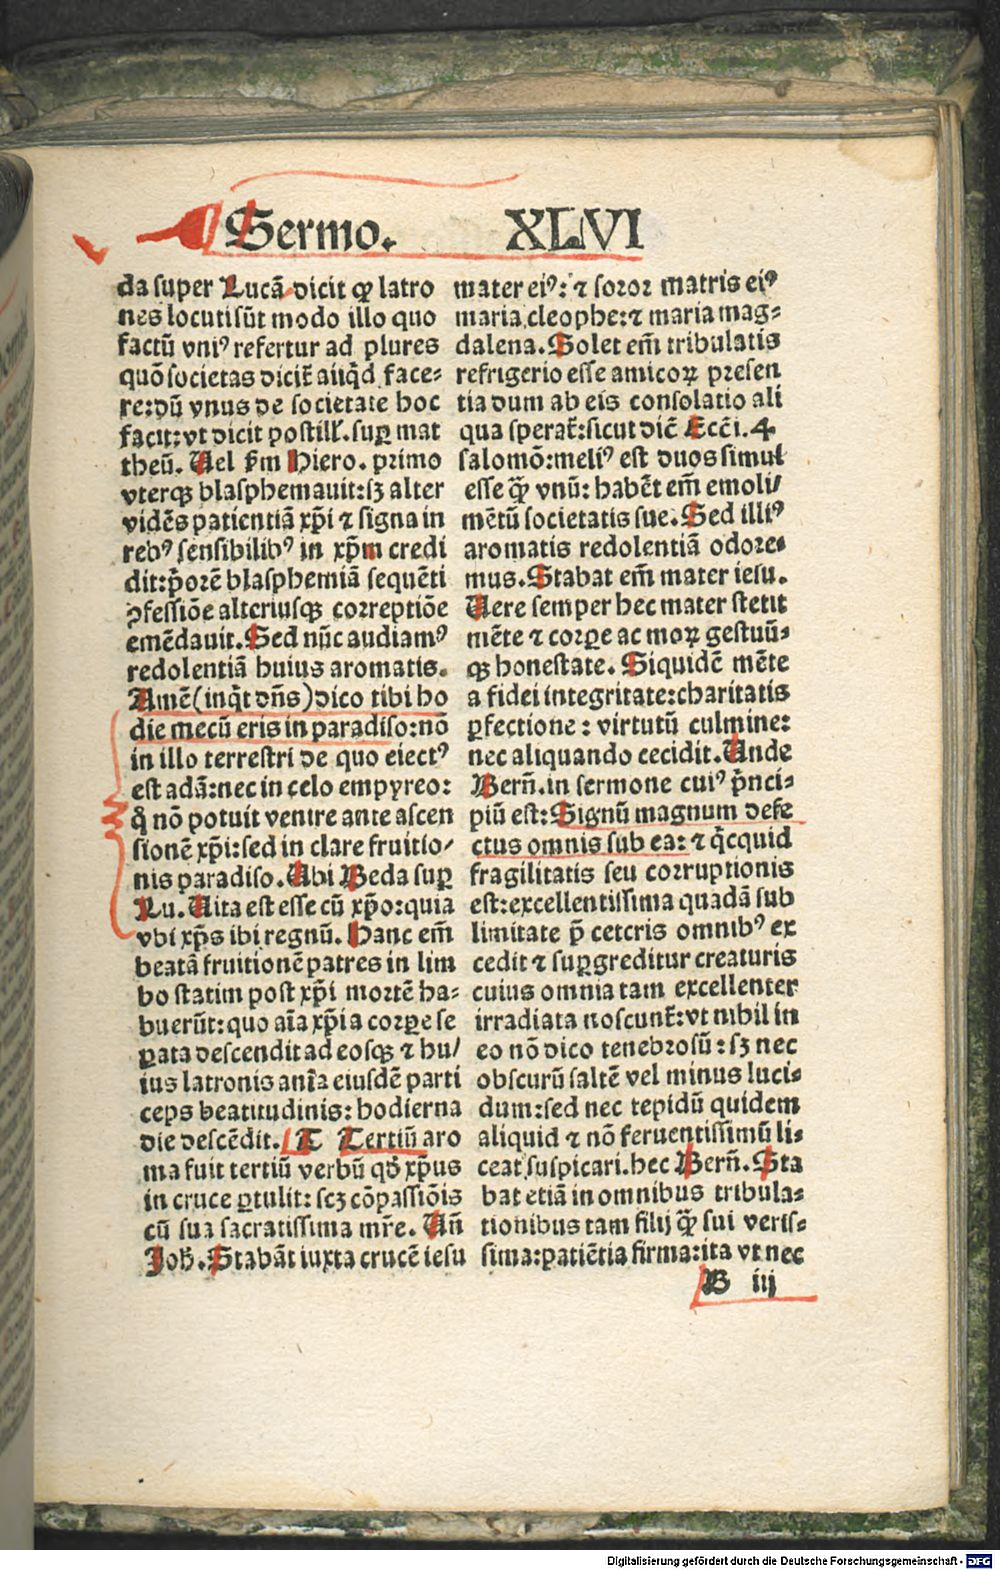 Sermo. XLVI
da super Lucã dicit ꝙ latro
nes locuti sũt modo illo quo
factũ vniꝰ refertur ad plures
quõ societas dicit̃ aliq̃d face⸗
re:dũ vnus de societate hoc
facit:vt dicit postill̃. suꝑ mat
theũ. Uel ẜm Hiero. primo
vterqꝫ blasphemauit:sꝫ alter
vidẽs patientiã xp̃i ⁊ signa in
rebꝰ sensibilibꝰ in xp̃m credi
dit:p̃orẽ blasphemiã sequẽti
ꝓfessiõe alteriusqꝫ correptiõe
emẽdauit. Sed nũc audiamꝰ
redolentiã huius aromatis.
Amẽ(inq̃t dñs)dico tibi ho
die mecũ eris in paradiso:nõ
in illo terrestri de quo eiectꝰ
est adã:nec in celo empyreo:
q̃ nõ potuit venire ante ascen
sionẽ xp̃i:sed in clare fruitio/
nis paradiso. Ubi Beda suꝑ
Lu. Uita est esse cũ xp̃o:quia
vbi xp̃s ibi regnũ. Hanc em̃
beatã fruitionẽ patres in lim
bo statim post xp̃i mortẽ ha⸗
buerũt:quo aĩa xp̃i a corꝑe se
ꝑata descendit ad eosqꝫ ⁊ hu/
ius latronis anĩa eiusdẽ parti
ceps beatitudinis: hodierna
die descẽdit. T Tertiũ aro
ma fuit tertiũ verbũ qđ xp̃us
in cruce ꝑtulit: scꝫ cõpassiõis
cũ sua sacratissima mr̃e. Uñ
Joh̃. Stabãt iuxta crucẽ iesu
mater eiꝰ: ⁊ soror matris eiꝰ
maria cleophe:⁊ maria mag⸗
dalena. Solet em̃ tribulatis
refrigerio esse amicoꝝ presen
tia dum ab eis consolatio ali
qua sperat̃:sicut dic̃ Ecc̃i. 4.
salomõ:meliꝰ est duos simul
esse q̃ꝫ vnũ: habẽt em̃ emoli/
mẽtũ societatis sue. Sed illiꝰ
aromatis redolentiã odore⸗
mus. Stabat em̃ mater iesu.
Uere semper hec mater stetit
mẽte ⁊ corꝑe ac moꝝ gestuũ⸗
qꝫ honestate. Siquidẽ mẽte
a fidei integritate:charitatis
ꝑfectione: virtutũ culmine:
nec aliquando cecidit. Unde
Bern̄. in sermone cuiꝰ p̃nci⸗
piũ est: Signũ magnum defe
ctus omnis sub ea: ⁊ q̃cquid
fragilitatis seu corruptionis
est:excellentissima quadã sub
limitate p̃ ceteris omnibꝰ ex
cedit ⁊ suꝑgreditur creaturis
cuius omnia tam excellenter
irradiata noscunt̃:vt nihil in
eo nõ dico tenebrosũ: sꝫ nec
obscurũ saltẽ vel minus luci⸗
dum:sed nec tepidũ quidem
aliquid ⁊ nõ feruentissimũ li⸗
ceat suspicari. hec Bern̄. Sta
bat etiã in omnibus tribula⸗
tionibus tam filij q̃ꝫ sui veris⸗
sima:patiẽtia firma:ita vt nec
B iij
Digitalisierung gefördert durch die Deutsche Forschungsgemeinschaft - DFG